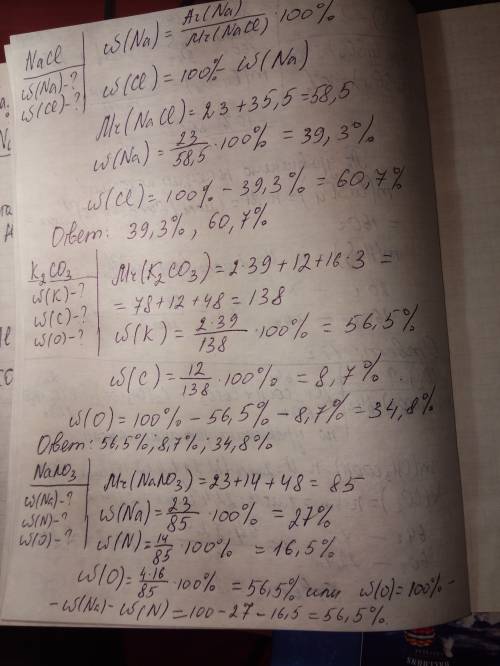 NaCl
ω(Na)-?
ω(Cl)-?
ω(Na) = Ar(Na)/Mr(NaCl) · 100%
ω(Cl) = 100% - ω(Na)
Mr(NaCl) = 23 + 35,5 = 58,5
ω(Na) = 23/58,5 · 100% = 39,3%
ω(Cl) = 100% - 39,3% = 60,7%
Ответ: 39,3%, 60,7%
K₂CO₃
ω(K)-?
ω(C)-?
ω(O)-?
Mr(K₂CO₃) = 2·39 + 12 + 16·3 =
= 78 + 12 + 48 = 138
ω(K) = 2·39/138 · 100% = 56,5%
ω(C) = 12/138 · 100% = 8,7%
ω(O) = 100% - 56,5% - 8,7% = 34,8%
Ответ: 56,5%; 8,7%; 34,8%
NaNO₃
ω(Na)-?
ω(N)-?
ω(O)-?
Mr(NaNO₃) = 23 + 14 + 48 = 85
ω(Na) = 23/85 · 100% = 27%
ω(N) = 14/85 · 100% = 16,5%
ω(O) = 4·16/85 · 100% = 56,5% или ω(O) = 100% -
- ω(Na) - ω(N) = 100 - 27 - 16,5 = 56,5%.